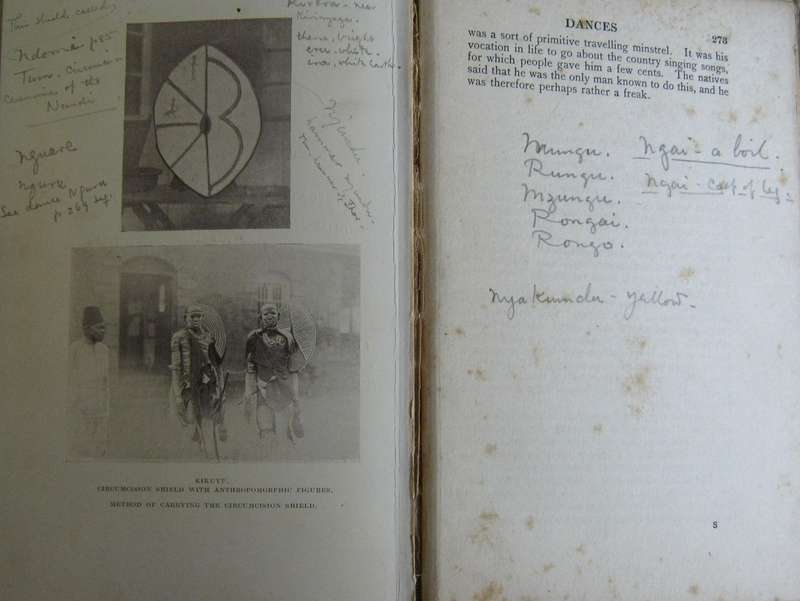 This shield called
Ndome p85
Turn. Circumcision
Ceremonies of the
Nandi
Nguare
ngura
See dance Ngura
p 269 seq.
near
bright
white
white earth.
hammer
KIKUYU.
CIRCUMCISION SHIELD WITH ANTHROPOMORPHIC FIGURES.
METHOD OF CARRYING THE CIRCUMCISION SHIELD.
DANCES
273
was a sort of primitive travelling minstrel. It was his
vocation in life to go about the country singing songs,
for which people gave him a few cents. The natives
said that he was the only man known to do this, and he
was therefore perhaps rather a freak.
Mungu. Ngai - a boil.
Rungu. Ngai - of leg
Mzungu.
Rongai.
Rongo.
Nyakundu - yellow.
S